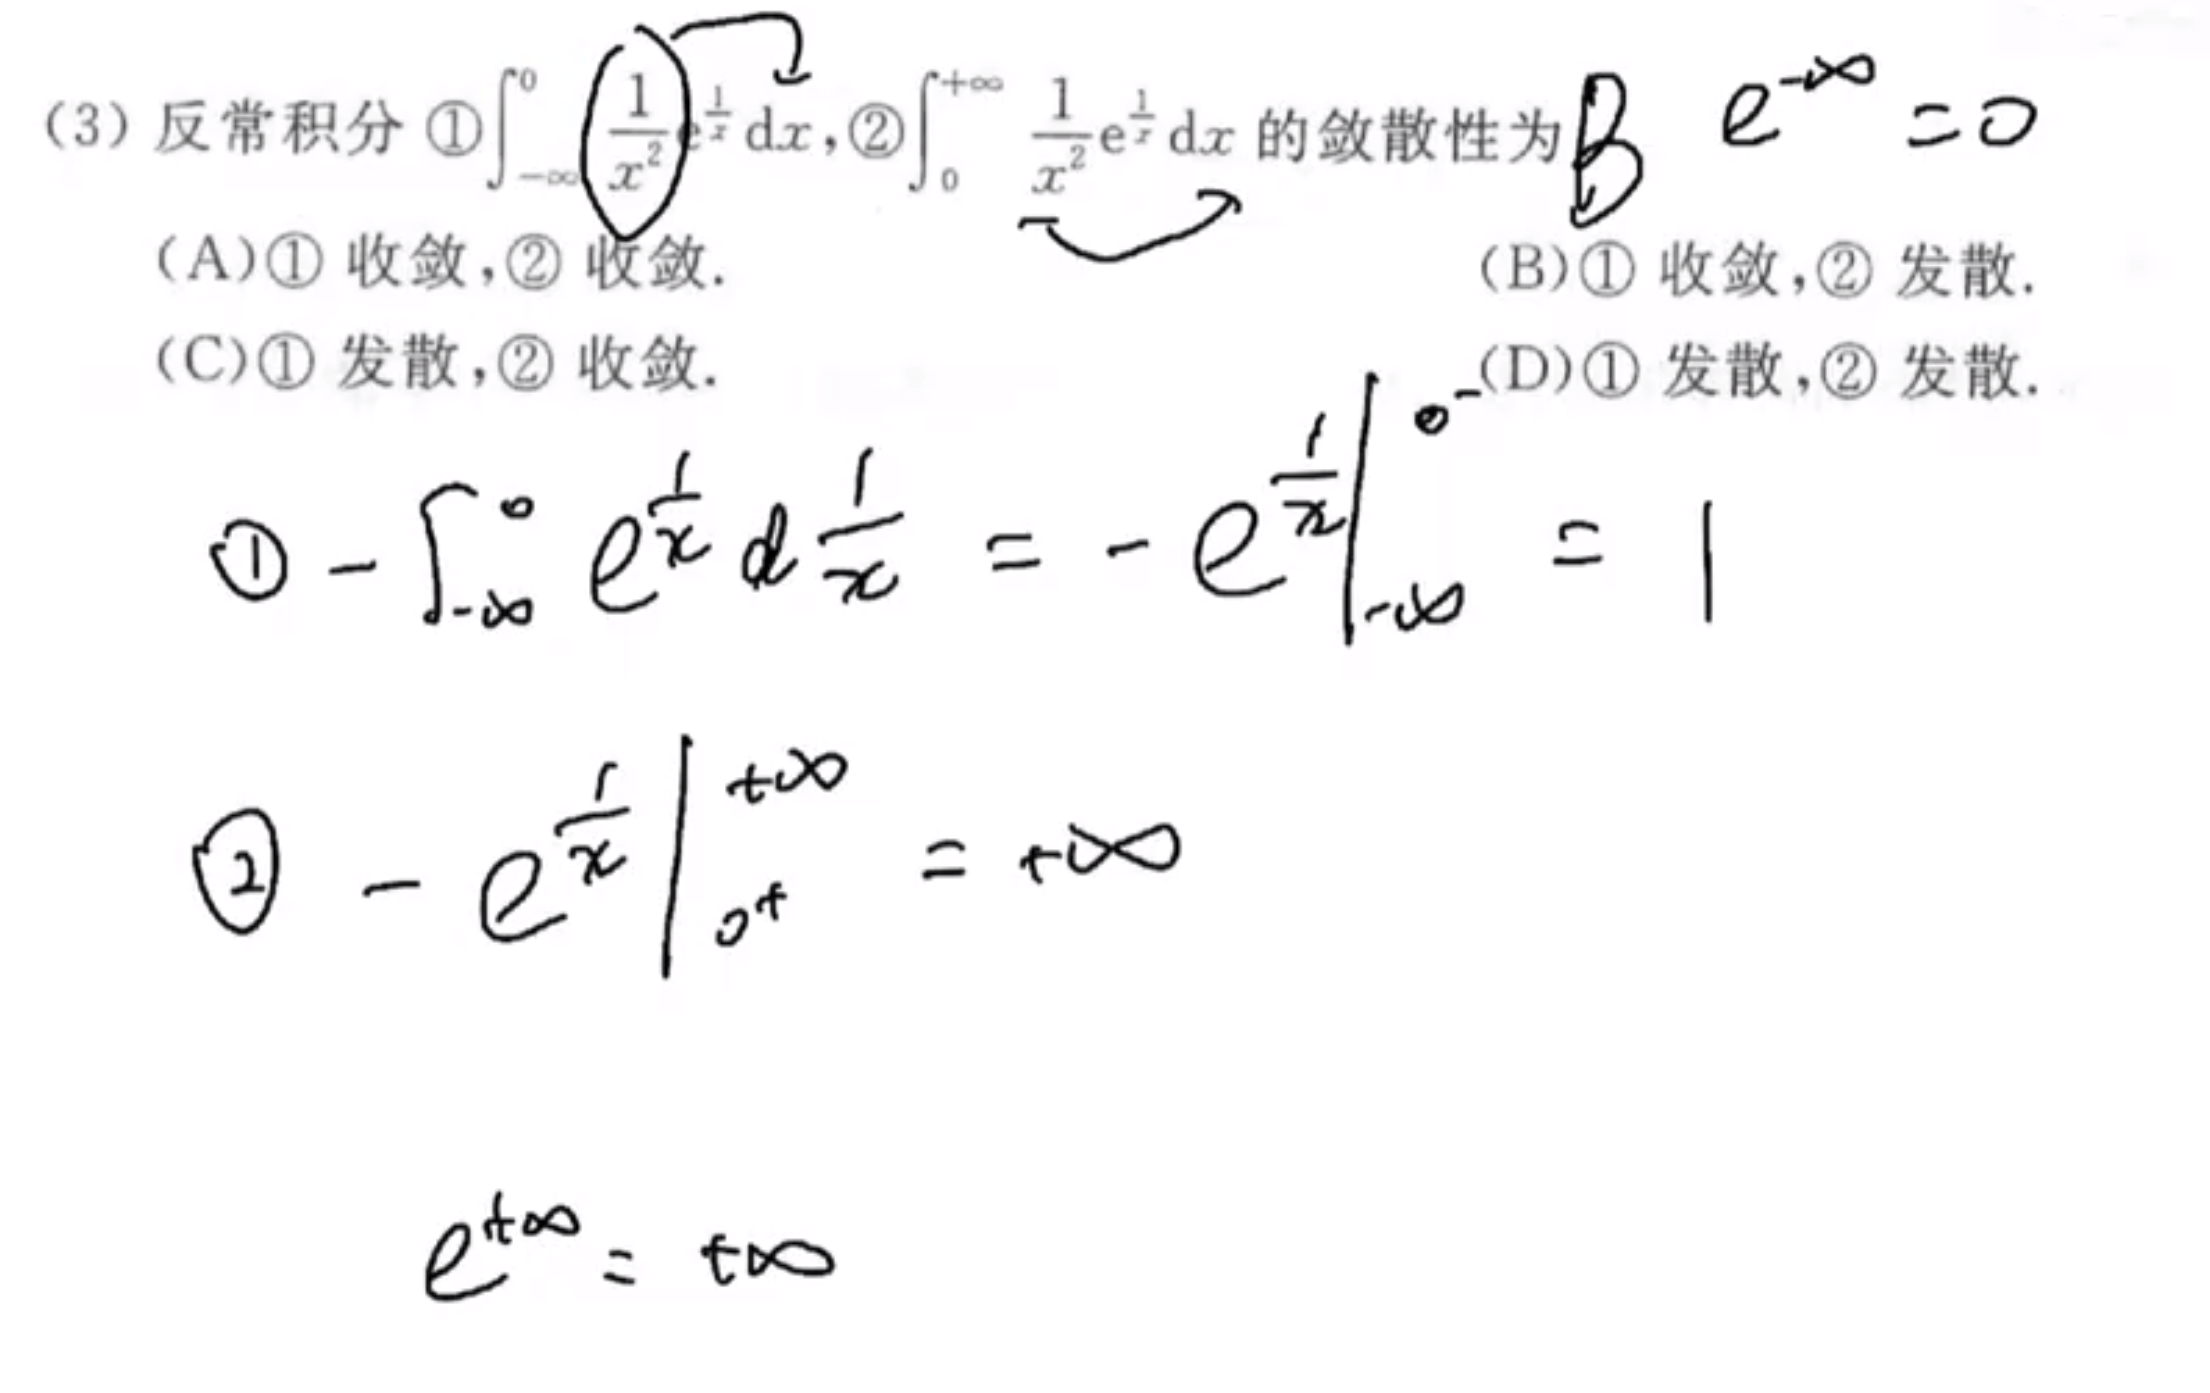 (3) 反常积分 ①∫_{-∞}^{0} 1/x² e^{1/x} dx,②∫_{0}^{+∞} 1/x² e^{1/x} dx 的敛散性为 B e^{-∞} = 0
(A)① 收敛,② 收敛. (B)① 收敛,② 发散.
(C)① 发散,② 收敛. (D)① 发散,② 发散.
① -∫_{-∞}^{0} e^{1/x} d 1/x = -e^{1/x} |_{-∞}^{0^-} = 1
② -e^{1/x} |_{0^+}^{+∞} = +∞
e^{+∞} = +∞